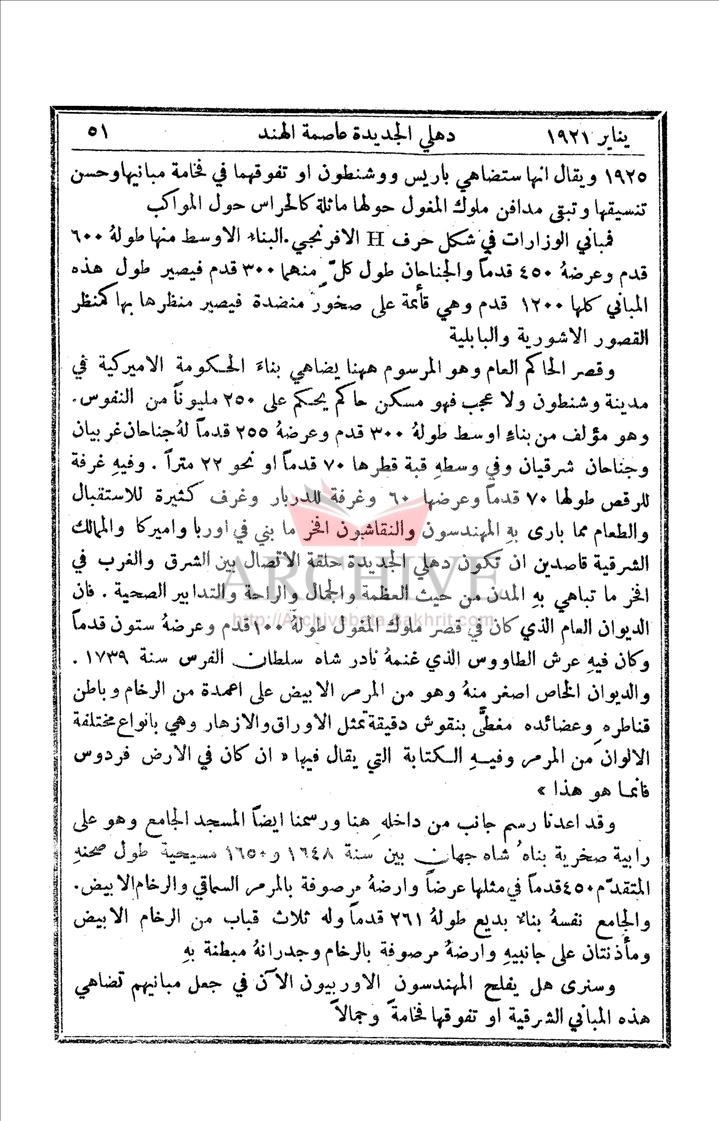 يناير ١٩٢١ دهلي الجديدة عاصمة الهند ٥١
١٩٢٥ ويقال انها ستضاهي باريس ووشنطون او تفوقهما في فخامة مبانيها وحسن
تنسيقها وتبقى مدافن ملوك المغول حولها ماثلة كالحراس حول المواكب
فمباني الوزارات في شكل حرف H الافرنجي . البناء الاوسط منها طولهُ ٦٠٠
قدم وعرضهُ ٤٥٠ قدماً والجناحان طول كلّ منهما ٣٠٠ قدم فيصير طول هذه
المباني كلها ١٢٠٠ قدم وهي قائمة على صخور منضدة فيصير منظرها بها كمنظر
القصور الاشورية والبابلية
وقصر الحاكم العام وهو المرسوم ههنا يضاهي بناءَ الحكومة الاميركية في
مدينة وشنطون ولا عجب فهو مسكن حاكم يحكم على ٢٥٠ مليوناً من النفوس .
وهو مؤلف من بناءٍ اوسط طولهُ ٣٠٠ قدم وعرضهُ ٢٥٥ قدماً لهُ جناحان غربيان
وجناحان شرقيان وفي وسطهِ قبة قطرها ٧٠ قدماً او نحو ٢٢ متراً . وفيهِ غرفة
للرقص طولها ٧٠ قدماً وعرضها ٦٠ وغرفة للدربار وغرف كثيرة للاستقبال
والطعام مما بارى بهِ المهندسون والنقاشون افخر ما بني في اوربا واميركا والممالك
الشرقية قاصدين ان تكون دهلي الجديدة حلقة الاتصال بين الشرق والغرب في
افخر ما تباهي بهِ المدن من حيث العظمة والجمال والراحة والتدابير الصحية . فان
الديوان العام الذي كان في قصر ملوك المغول طولهُ ١٠٠ قدم وعرضهُ ستون قدماً
وكان فيهِ عرش الطاووس الذي غنمهُ نادر شاه سلطان الفرس سنة ١٧٣٩ .
والديوان الخاص اصغر منهُ وهو من المرمر الابيض على اعمدة من الرخام وباطن
قناطرهِ وعضائده مغطَّى بنقوش دقيقة تمثل الاوراق والازهار وهي بانواع مختلفة
الالوان من المرمر وفيهِ الكتابة التي يقال فيها « ان كان في الارض فردوس
فانما هو هذا »
وقد اعدنا رسم جانب من داخلهِ هنا ورسمنا ايضاً المسجد الجامع وهو على
رابية صخرية بناهُ شاه جهان بين سنة ١٦٤٨ و١٦٥٠ مسيحية طول صحنهِ
المتقدّم ٤٥٠ قدماً في مثلها عرضاً وارضهُ مرصوفة بالمرمر السماقي والرخام الابيض .
والجامع نفسهُ بناءٌ بديع طولهُ ٢٦١ قدماً وله ثلاث قباب من الرخام الابيض
ومأذنتان على جانبيهِ وارضهُ مرصوفة بالرخام وجدرانهُ مبطنة بهِ
وسنرى هل يفلح المهندسون الاوربيون الآن في جعل مبانيهم تضاهي
هذه المباني الشرقية او تفوقها فخامةً وجمالاً
ARCHIVE
http://Archivebeta.Sakhrit.com